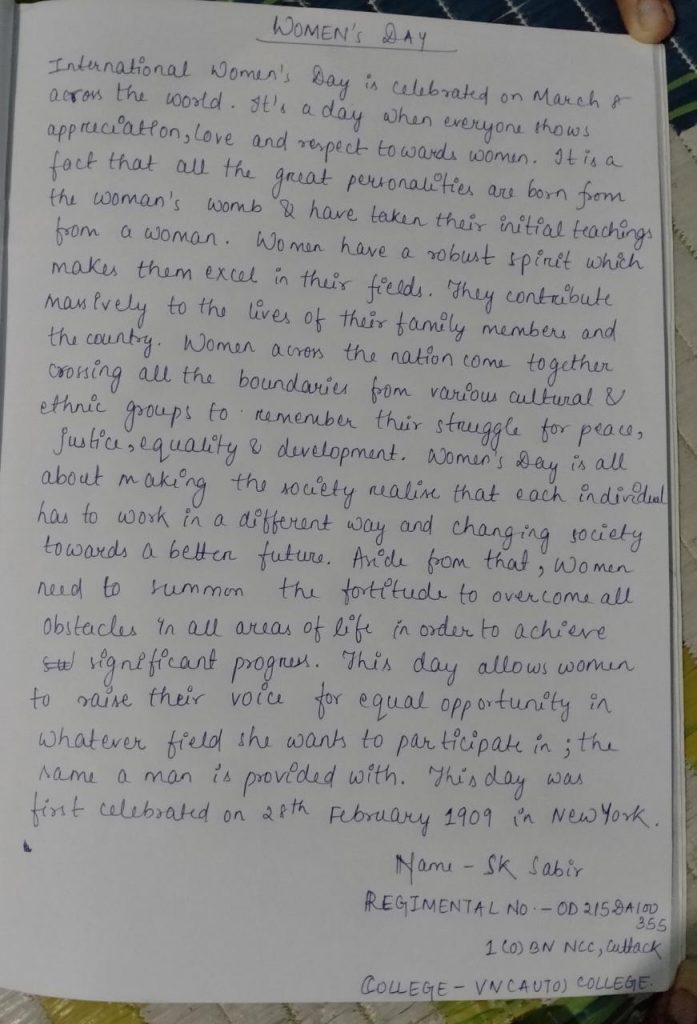 WOMEN'S DAY
International Women's Day is celebrated on March 8
across the world. It's a day when everyone shows
appreciation, love and respect towards women. It is a
fact that all the great personalities are born from
the woman's womb & have taken their initial teachings
from a woman. Women have a robust spirit which
makes them excel in their fields. They contribute
massively to the lives of their family members and
the country. Women across the nation come together
crossing all the boundaries from various cultural &
ethnic groups to remember their struggle for peace,
justice, equality & development. Women's Day is all
about making the society realise that each individual
has to work in a different way and changing society
towards a better future. Aside from that, women
need to summon the fortitude to overcome all
obstacles in all areas of life in order to achieve
significant progress. This day allows women
to raise their voice for equal opportunity in
whatever field she wants to participate in ; the
same a man is provided with. This day was
first celebrated on 28th February 1909 in New York.
Name - SK Sabir
REGIMENTAL NO. - OD215DA100
355
1 (O) BN NCC, Cuttack
COLLEGE - VN (AUTO) COLLEGE.